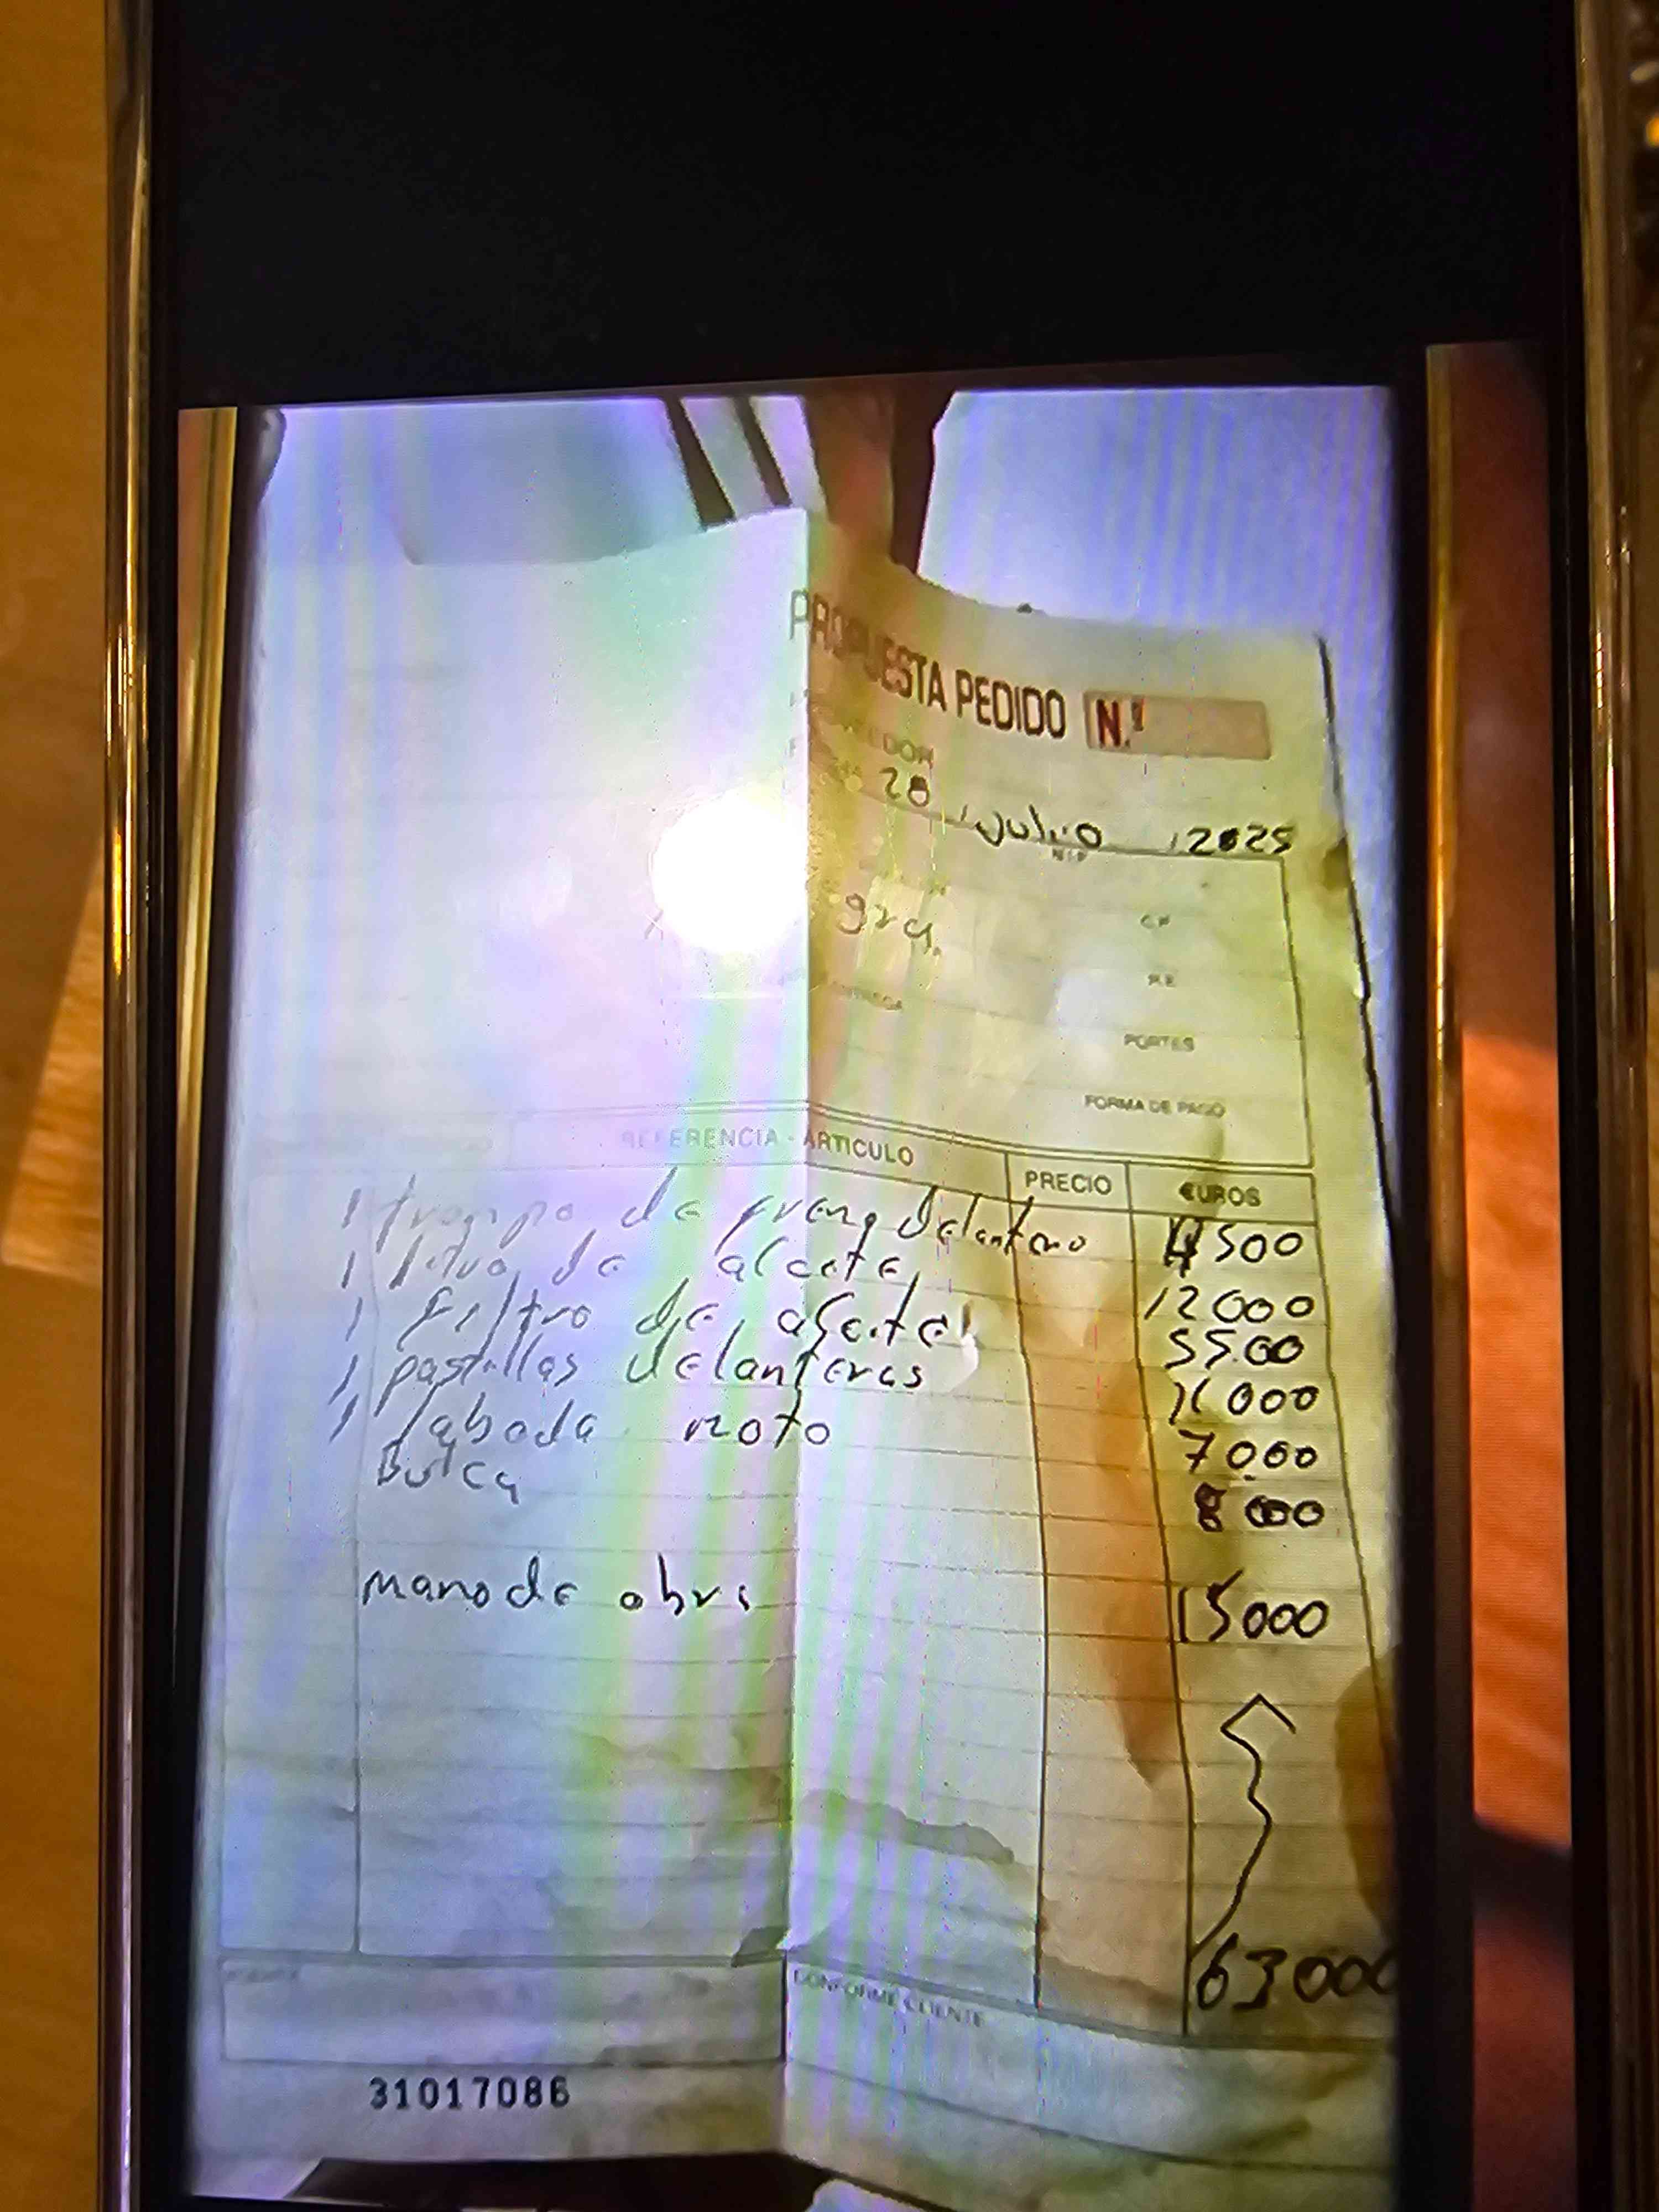 PROPUESTA PEDIDO N.º
28 Julio 2025
N.I.F.
gra.
C.P.
R.E.
ENTREGA
PORTES
FORMA DE PAGO
REFERENCIA - ARTICULO PRECIO €UROS
1 de freno delantero 4500
1 de aceite 12000
1 filtro de aceite 5500
1 pastillas delanteras 11000
1 laboda moto 7000
Buica 8000
mano de obra 15000
63000
CONFORME CLIENTE
31017086